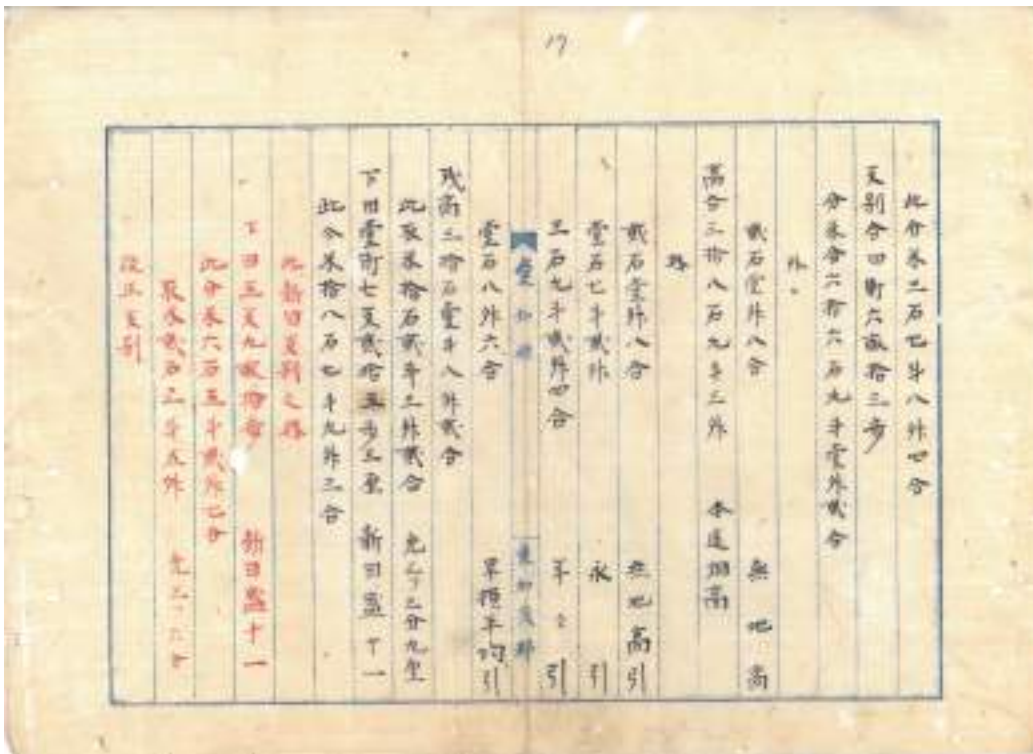 17
此分米三石七斗八升四合
反別合四町六畝拾三歩
分米合六拾六石九斗壹升貳合
外
貳石壹升八合 無地高
高合三拾八石九斗三升 本途掛高
内
貳石壹升八合 無地高引
壹石七斗貳升 永引
三石九斗貳升四合 年々引
愛知縣
壹石八升六合 旱損平均引
残高三拾石壹斗八升貳合
此取米拾石貳斗三升貳合
下田壹町七反貳拾五歩三厘 新田盛十一
此分米拾八石七斗九升三合
此新田反別之内
下田五反九畝拾歩 新田盛十一
此分米六石五斗貳升七合
取米貳石三斗五升
改正反別